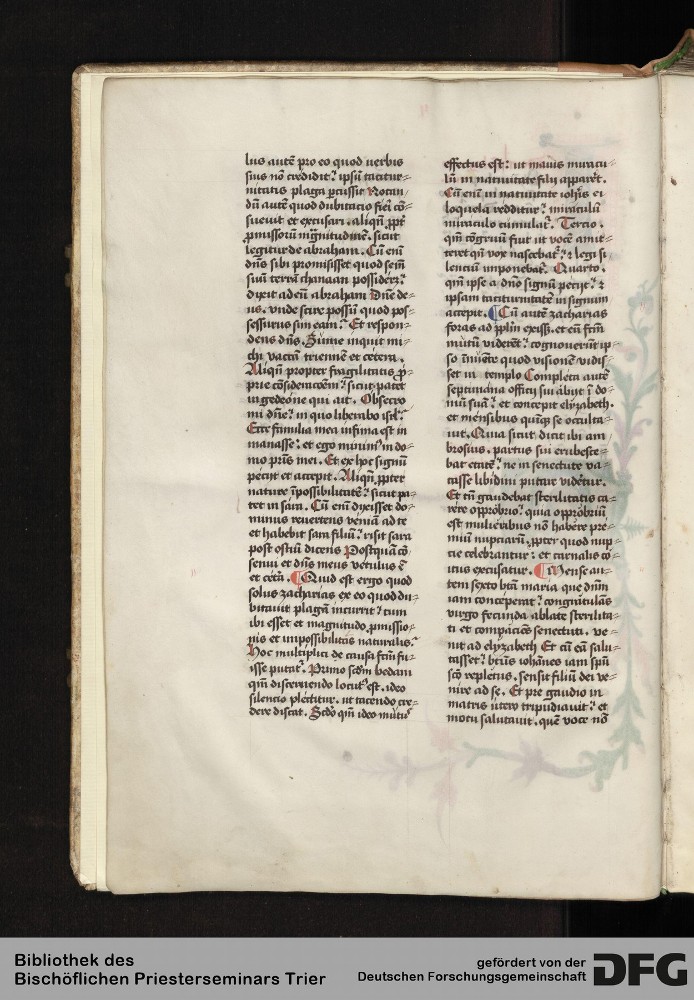 lus autē pro eo quod uerbis
suis nō credidit: ipsū tacitur-
nitatis plaga ꝑcussit Notan-
dū autē quod dubitatio fieri cō-
sueuit et excusari. aliqn̄ ꝓpt̄
ꝓmissorū magnitudinē. sicut
legitur de abraham. Cū em̄
dn̄s sibi promisisset quod sem̄
suū terrā chanaan possiderz:
dixit ad eū abraham Dn̄e de-
us. vnde scire possū quod pos-
sessurus sim eam: Et respon-
dens dn̄s. Sume inquit mi-
chi vaccā triennē et cetera.
Aliqn̄ propter fragilitatis ꝓ-
prie cōsideracōem: sicut patet
in gedeone qui ait. Obsecro
mi dn̄e: in quo liberabo isrl:
Ecce familia mea infima est in
manasse: et ego minimꝰ in do-
mo pr̄is mei. Et ex hoc signū
peciit et accepit. Aliqn̄ ꝓpter
nature īpossibilitatē: sicut pa-
tet in sara. Cū em̄ dixisset do-
minus reuertens veniā ad te
et habebit sara filiū: risit sara
post ostiū dicens Postquā cō-
senui et dn̄s meus vetulus ē
et cetā. Quid est ergo quod
solus zacharias ex eo quod du-
bitauit plagā incurrit: cum
ibi esset et magnitudo ꝓmissio-
nis et impossibilitas naturalis:
Hoc multiplici de causa fcm̄ fu-
isse putat. Primo scdm̄ bedam
qm̄ discredendo locutꝰ est. ideo
silencio plectitur. ut tacendo cre-
dere discat. Scdo qm̄ ideo mutꝰ
effectus est: ut maius miracu-
lū in natiuitate filij appareret.
Cū em̄ in natiuitate ioh̄is ei
loquela redditur: miraculū
miraculo cumulat. Tercio.
qm̄ cōgruū fuit ut vocē amit-
teret qn̄ vox nascebat: ⁊ legi si-
lenciū imponebat. Quarto.
qm̄ ipse a dn̄o signū peciit: ⁊
ipsam taciturnitatē in signum
accepit. Cū autē zacharias
foras ad pplm̄ exiss. et eū fcm̄
mutū viderēt: cognouerūt ip-
so innuēte quod visionē vidis-
set in templo Completa autē
septimana officij sui abijt ī do-
mū suā: et concepit elyzabeth.
et mensibus quinqꝫ se occulta-
uit. Quia sicut dicit ibi am-
brosius. partus sui erubesce-
bat etatē: ne in senectute va-
casse libidini putar videtur.
Et tn̄ gaudebat sterilitatis ca-
rere opprobrio: quia opprobriū
est mulieribus nō habere pre-
miū nupciarū. ꝓpter quod nup-
cie celebrantur: et carnalis co-
itus excusatur. Mense au-
tem sexto btā maria que dn̄m
iam conceperat: congratulās
virgo fecunda ablate sterilita-
ti et compaciēs senectuti. ve-
nit ad elyzabeth Et cū eā salu-
tasset: bt̄us iohānes iam spū
scō repletus. sensit filiū dei ve-
nire ad se. Et pre gaudio in
matris utero tripudiauit: et
motu salutauit. quē voce nō
Bibliothek des
Bischöflichen Priesterseminars Trier
gefördert von der
Deutschen Forschungsgemeinschaft
DFG